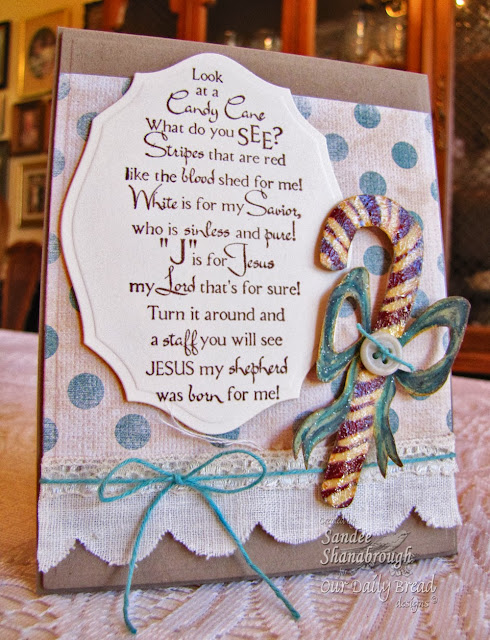 Look
at a
Candy Cane
What do you SEE?
Stripes that are red
like the blood shed for me!
White is for my Savior,
who is sinless and pure!
"J" is for Jesus
my Lord that's for sure!
Turn it around and
a staff you will see
JESUS my shepherd
was born for me!
Sandee
Shanabrough
Our Daily Bread
designs